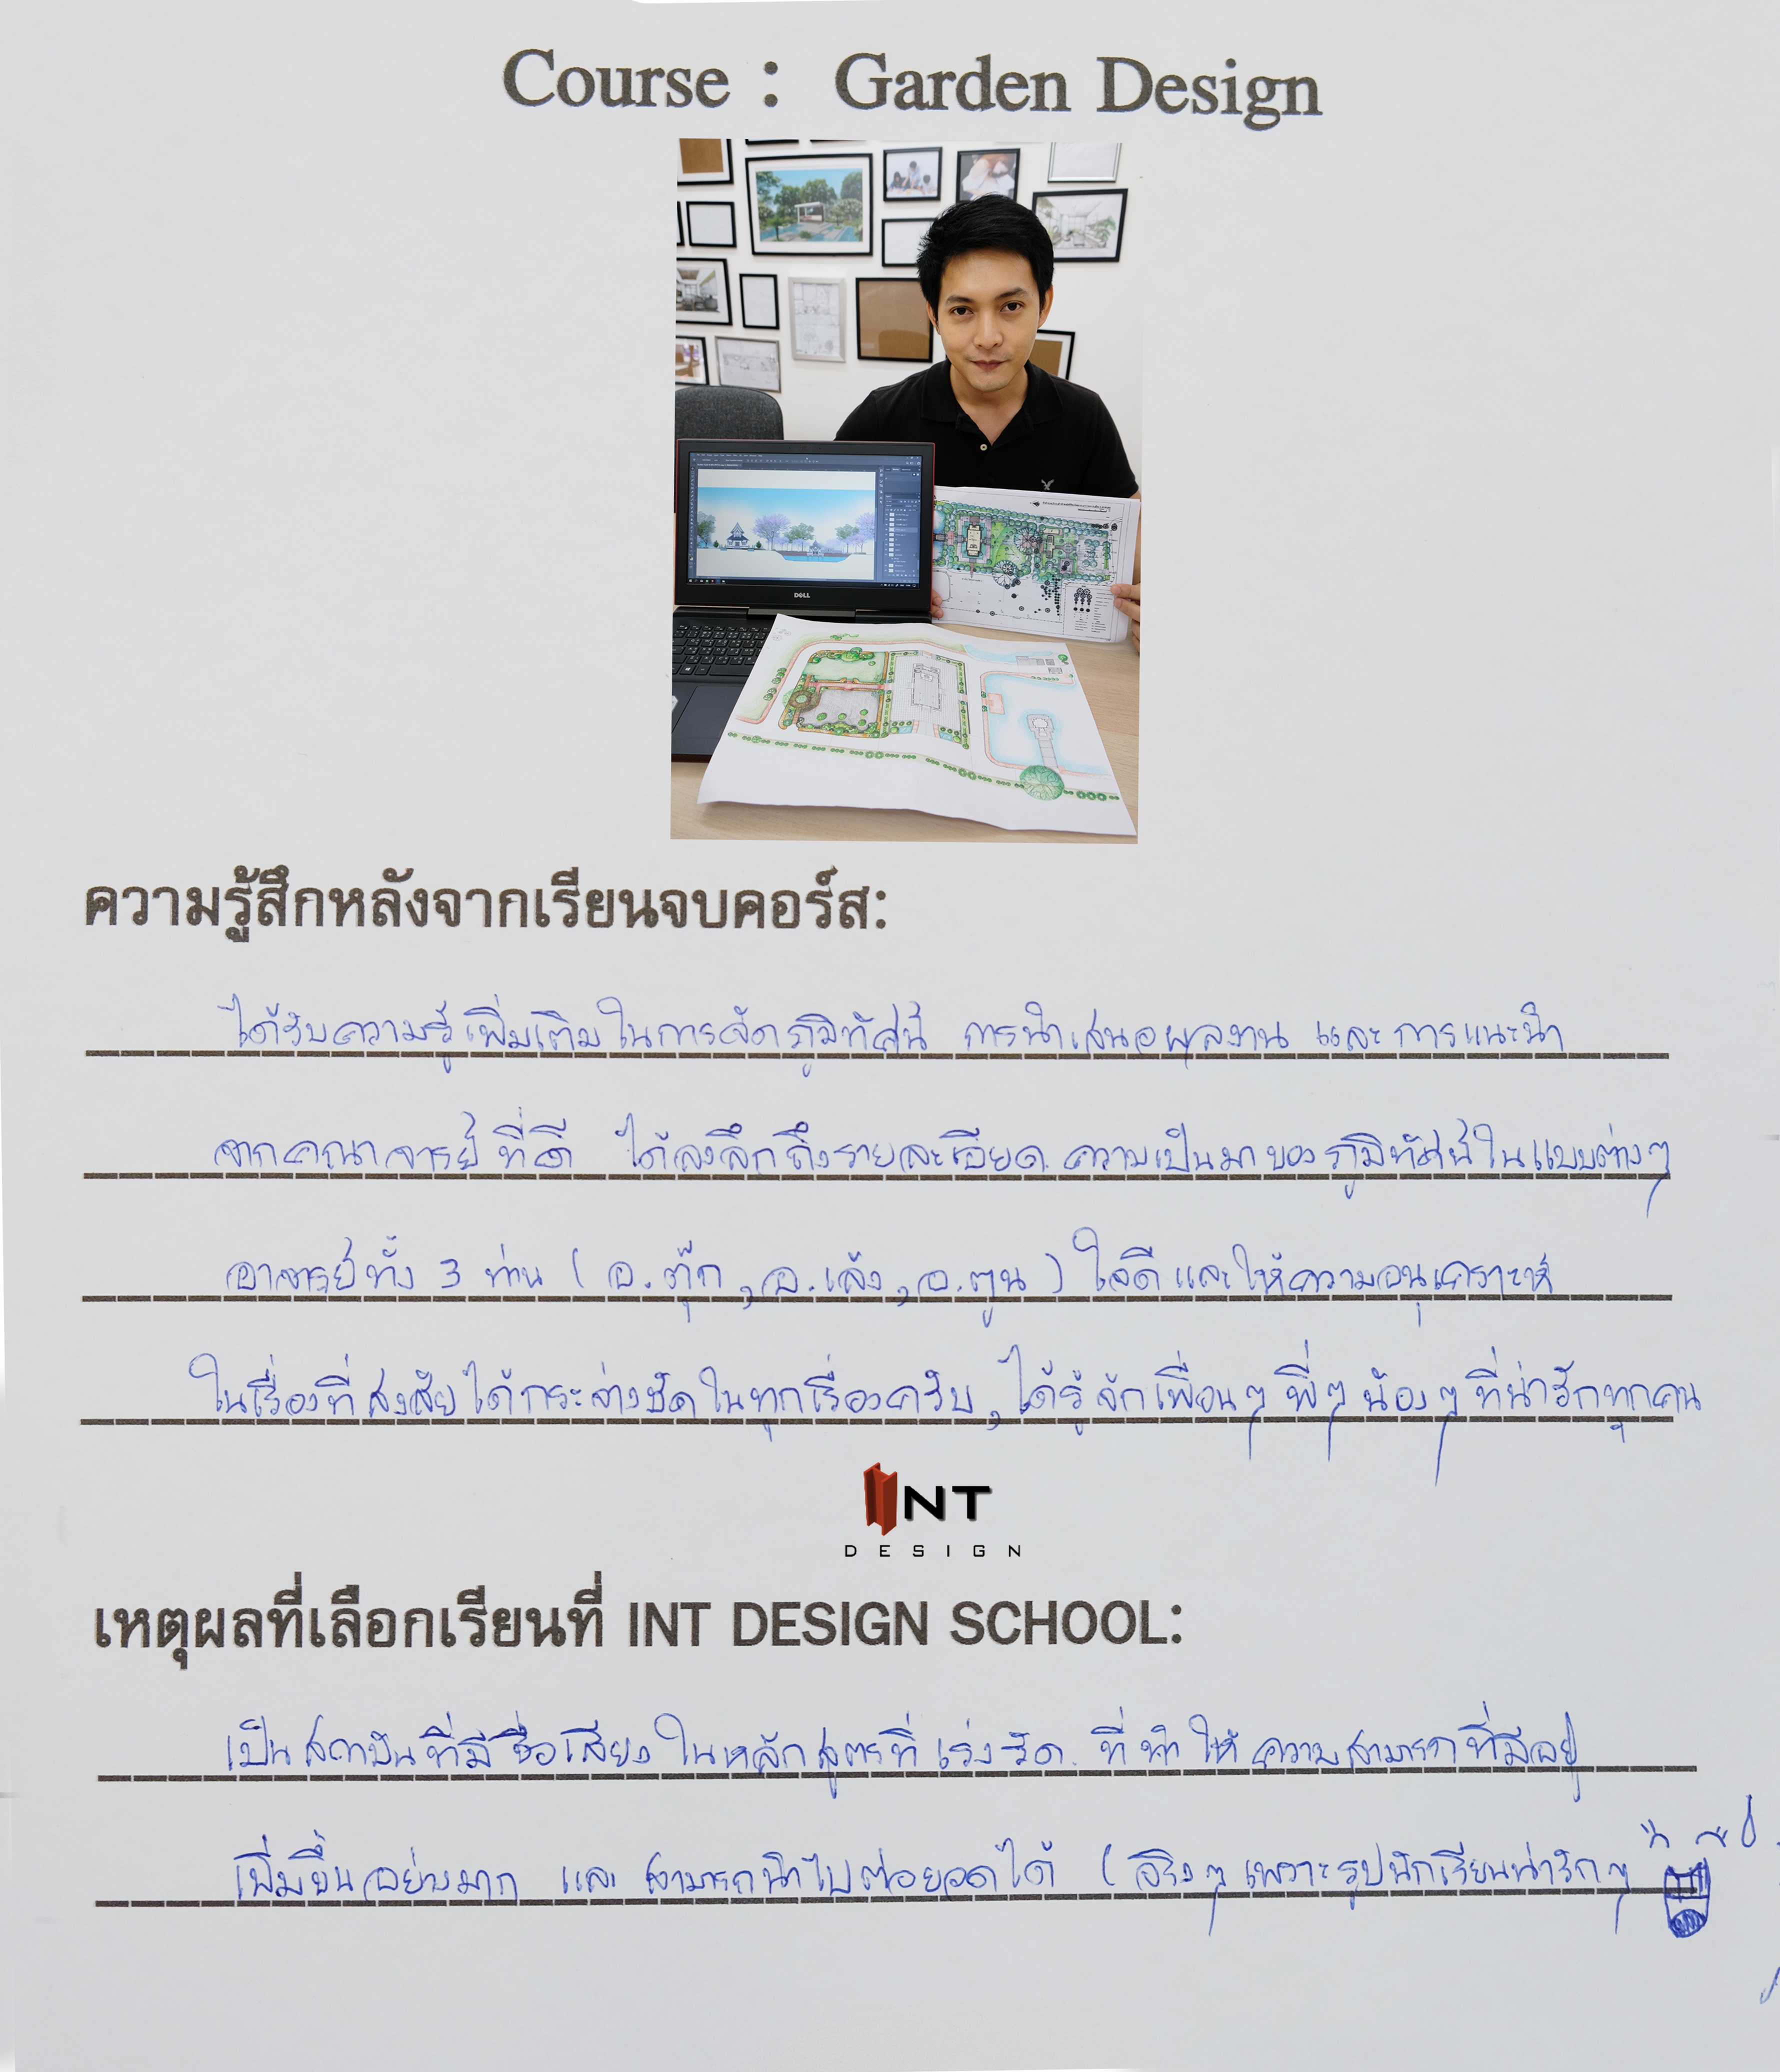 Course : Garden Design
DELL
ความรู้สึกหลังจากเรียนจบคอร์ส:
ได้รับความรู้เพิ่มเติมในการจัดภูมิทัศน์ การนำเสนอผลงาน และการแนะนำ
จากคณาจารย์ที่ดี ได้ลงลึกถึงรายละเอียด ความเป็นมาของภูมิทัศน์ในแบบต่างๆ
อาจารย์ทั้ง 3 ท่าน ( อ.ตุ๊ก, อ.เล้ง, อ.ตูน ) ใจดีและให้ความอนุเคราะห์
ในเรื่องที่สงสัยได้กระจ่างชัดในทุกเรื่องครับ, ได้รู้จักเพื่อนๆ พี่ๆ น้องๆ ที่น่ารักทุกคน
INT
DESIGN
เหตุผลที่เลือกเรียนที่ INT DESIGN SCHOOL:
เป็นสถาบันที่มีชื่อเสียง ในหลักสูตรที่เร่งรัด ที่ทำให้ความสามารถที่มีอยู่
เพิ่มขึ้นอย่างมาก และ สามารถนำไปต่อยอดได้ ( จริงๆ เพราะรูปนักเรียนน่ารักๆ